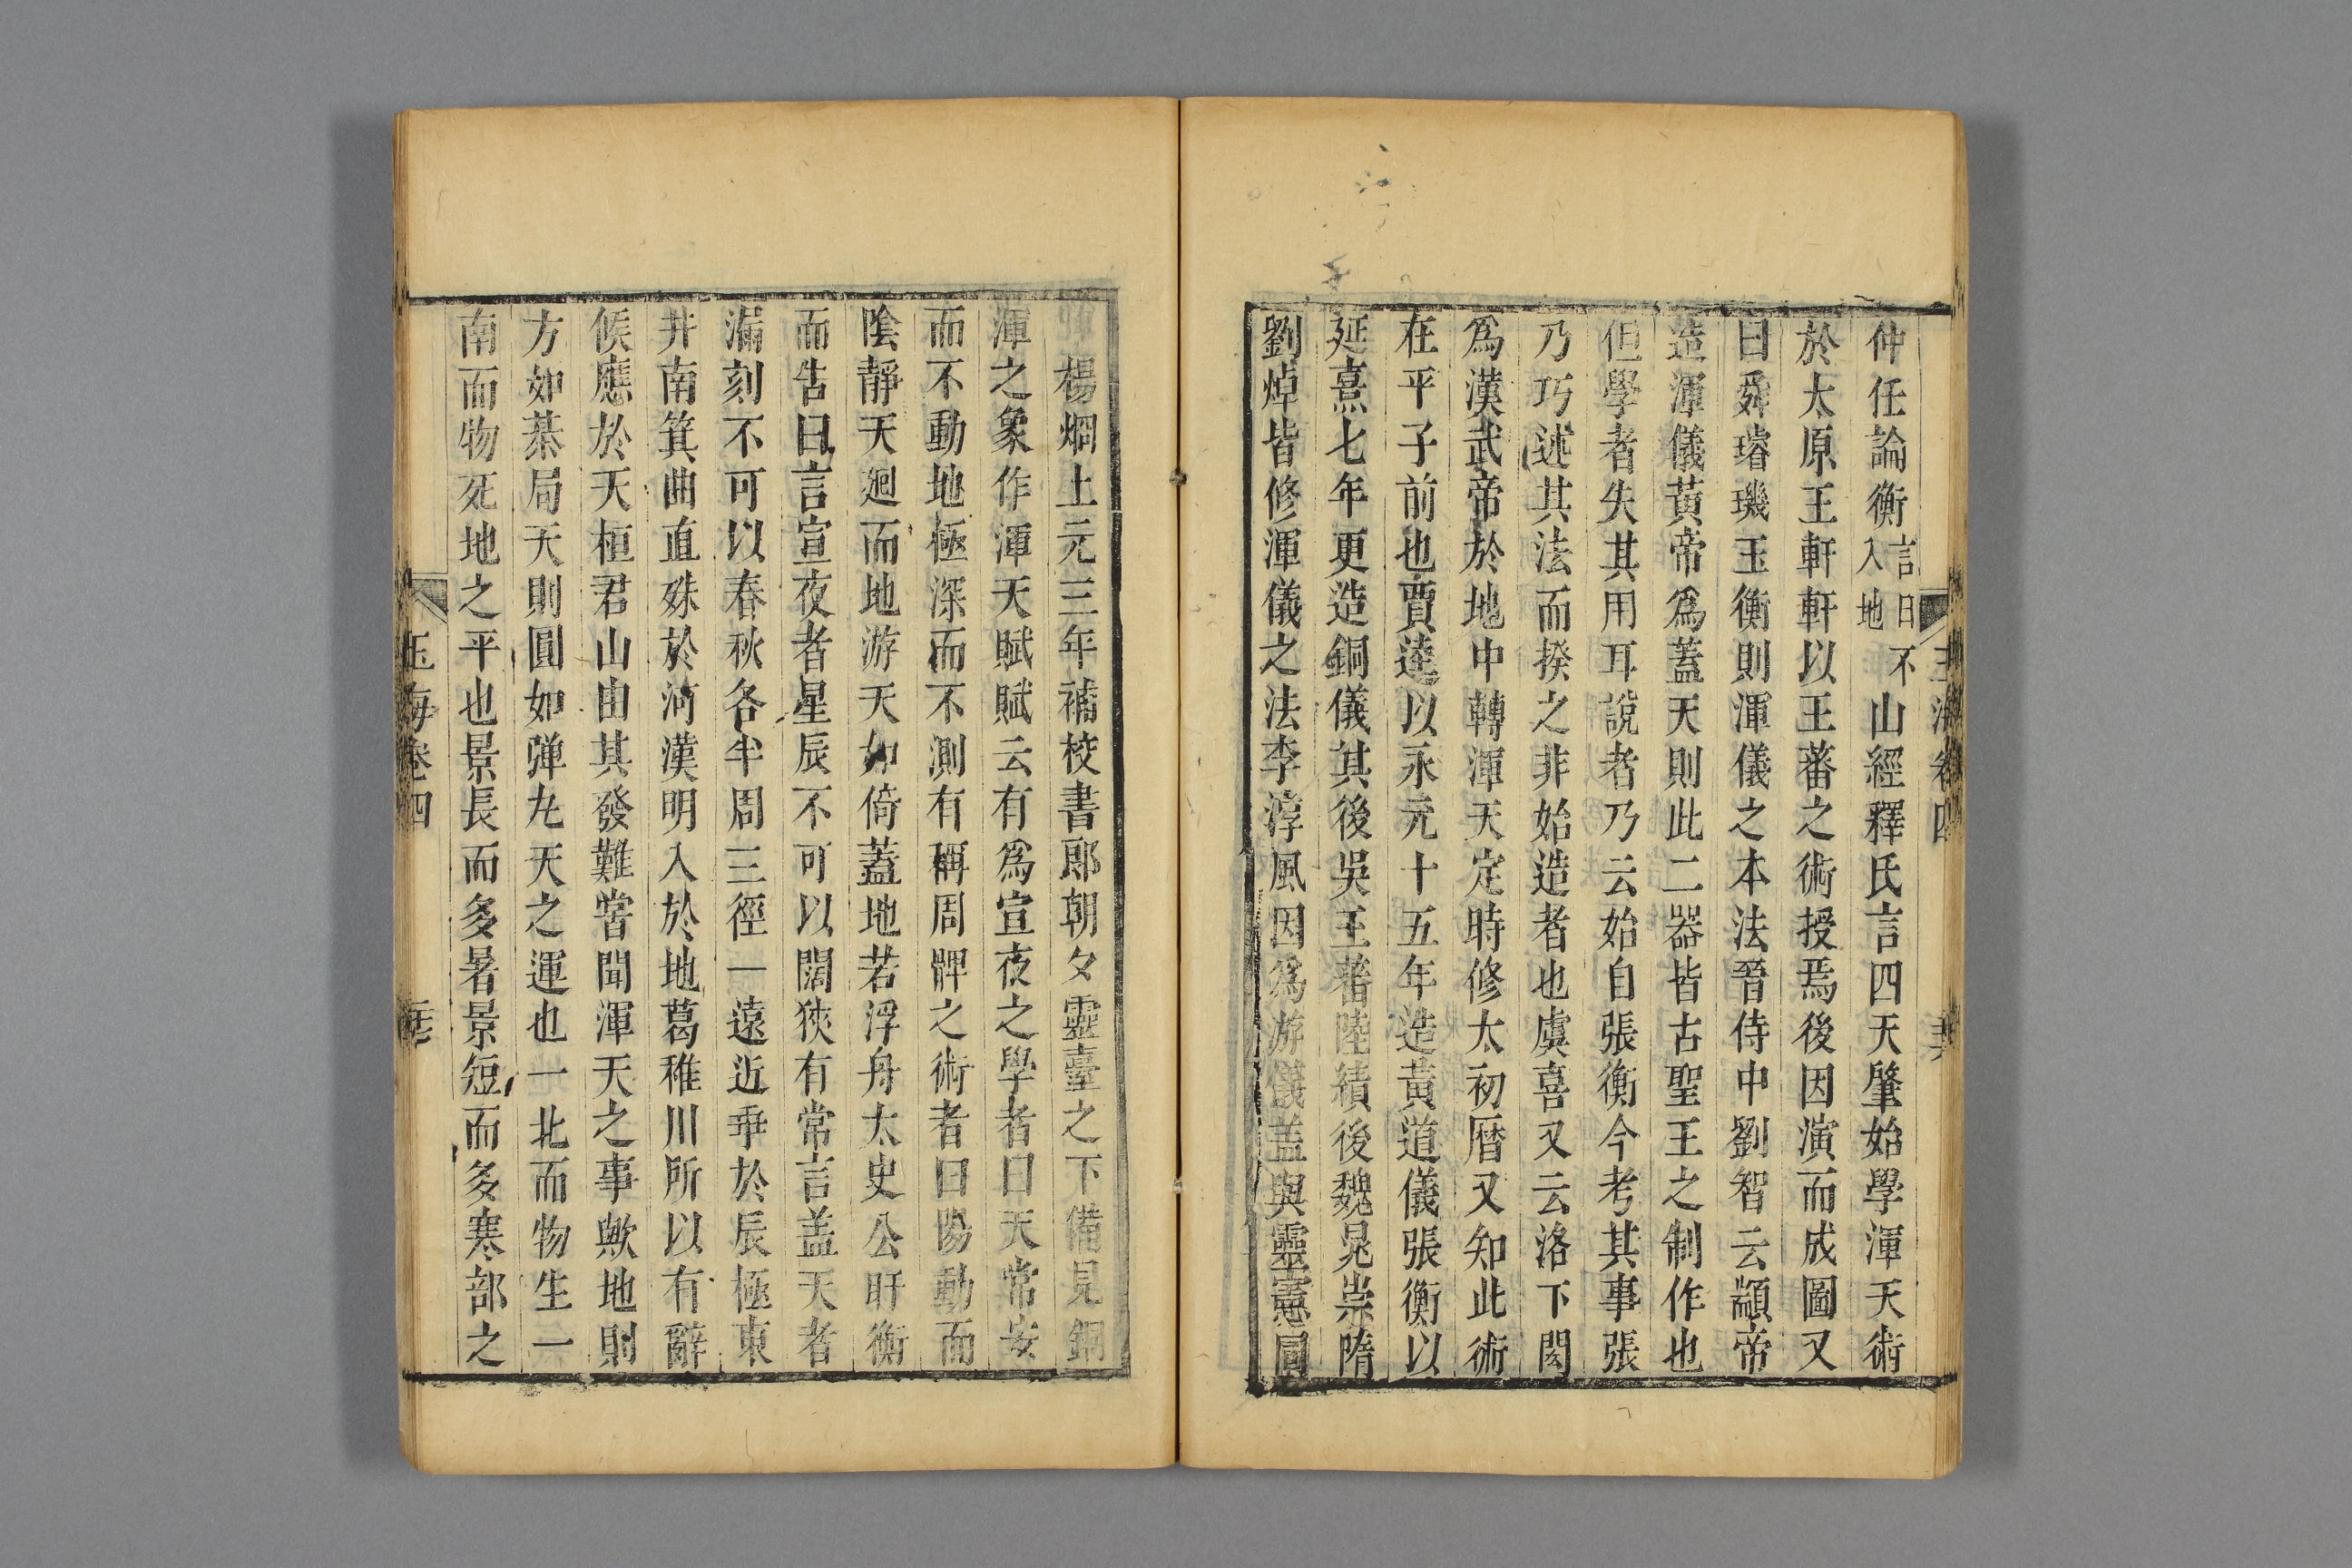 仲任論衡言日不入地山經釋氏言四天肇始學渾天術
於太原王軒軒以王蕃之術授焉後因演而成圖又
曰舜璿璣玉衡則渾儀之本法晉侍中劉智云顓帝
造渾儀黃帝爲蓋天則此二器皆古聖王之制作也
但學者失其用耳說者乃云始自張衡今考其事張
乃巧述其法而揆之非始造者也虞喜又云洛下閎
爲漢武帝於地中轉渾天定時修太初曆又知此術
在平子前也賈逵以永元十五年造黃道儀張衡以
延熹七年更造銅儀其後吳王蕃陸績後魏晁崇隋
劉焯皆修渾儀之法李淳風因爲游儀盖與靈憲圓
楊烱上元三年補校書郎朝夕靈臺之下備見銅
渾之象作渾天賦賦云有爲宣夜之學者曰天常安
而不動地極深而不測有稱周髀之術者曰陽動而
陰靜天廻而地游天如倚蓋地若浮舟太史公盱衡
而告曰言宣夜者星辰不可以闊狹有常言盖天者
漏刻不可以春秋各半周三徑一遠近乖於辰極東
井南箕曲直殊於河漢明入於地葛稚川所以有辭
候應於天桓君山由其發難嘗聞渾天之事歟地則
方如棊局天則圓如弹丸天之運也一北而物生一
南而物死地之平也景長而多暑景短而多寒部之
玉海卷四